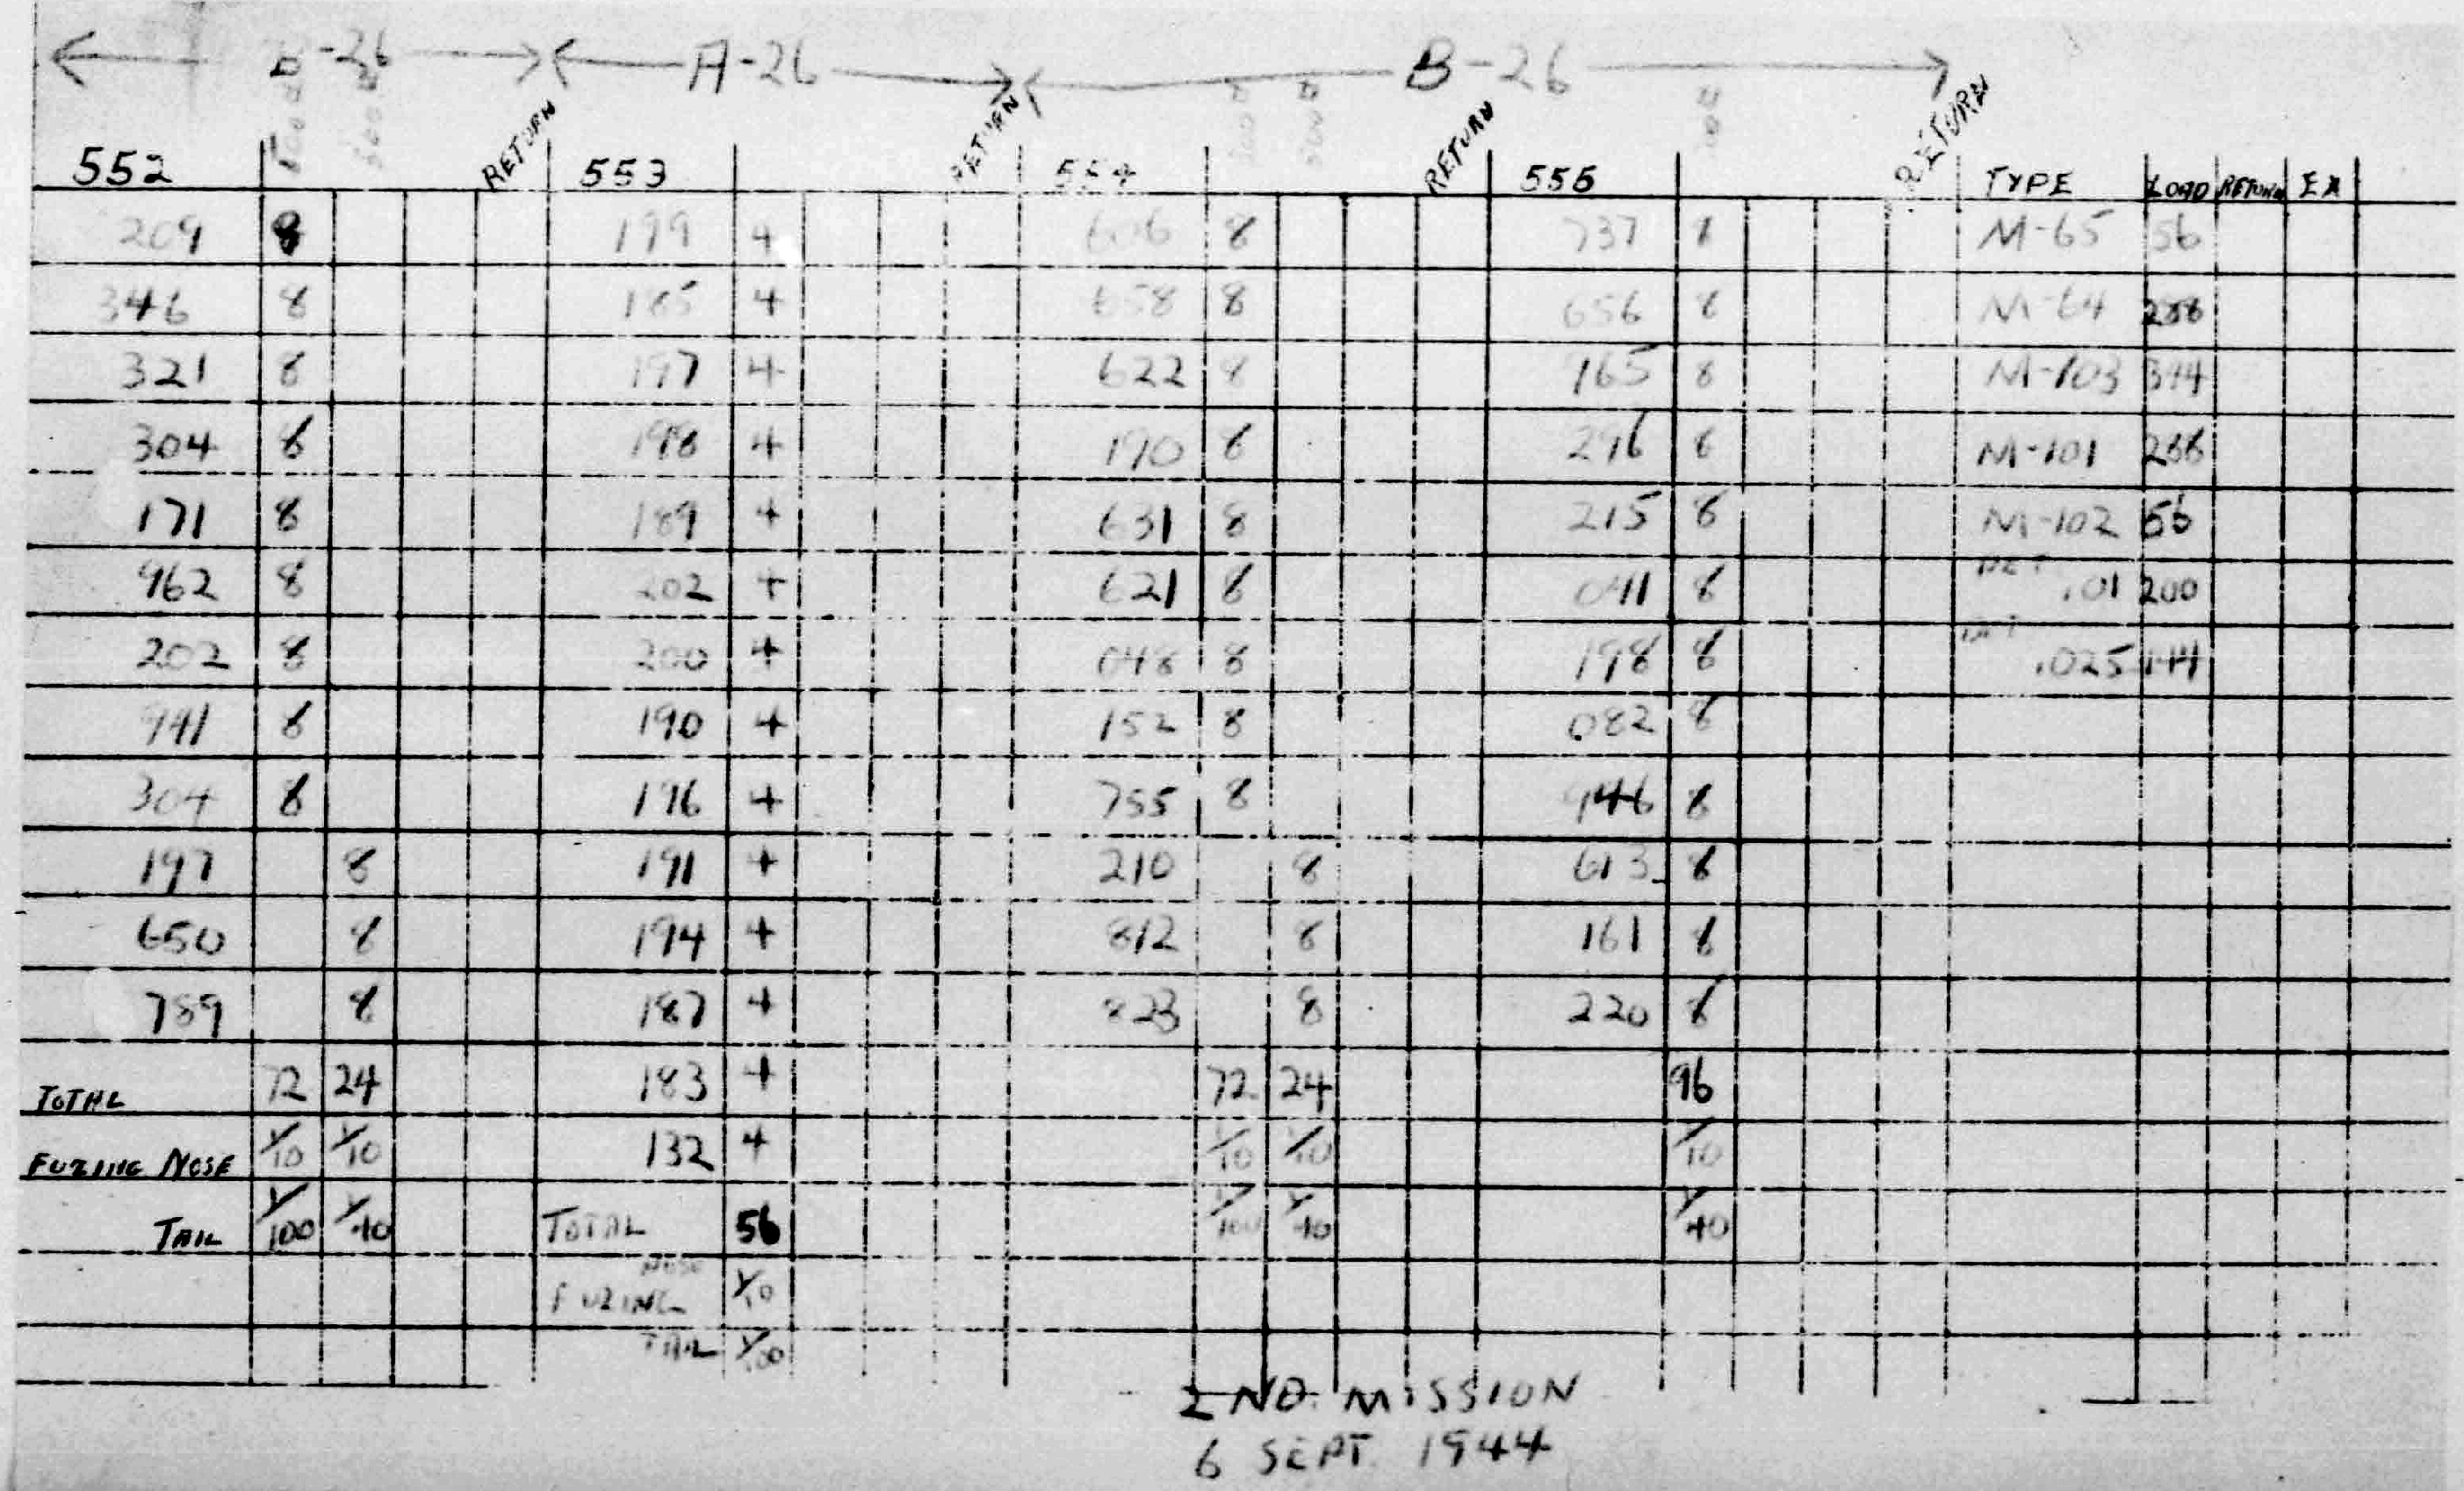 B-26 A-26 B-26
552 RETURN 553 RETURN 554 RETURN 555 RETURN TYPE LOAD RETURN EX
209 8 199 4 606 8 737 8 M-65 56
346 8 185 4 658 8 656 8 M-64 288
321 8 197 4 622 8 965 8 M-103 344
304 8 198 4 190 8 296 8 M-101 288
171 8 189 4 631 8 215 8 M-102 56
962 8 202 4 621 8 041 8 .01 200
202 8 200 4 048 8 198 8 .025 144
941 8 190 4 152 8 082 8
304 8 196 4 755 8 946 8
197 8 191 4 210 8 613 8
650 8 194 4 812 8 161 8
789 8 187 4 823 8 220 8
TOTAL 72 24 183 4 72 24 96
FUZING NOSE 1/10 1/10 132 4 1/10 1/10 1/10
TAIL 1/100 1/40 TOTAL 56 1/100 1/40 1/40
NOSE
FUZING 1/10
TAIL 1/100
2ND. MISSION
6 SEPT. 1944